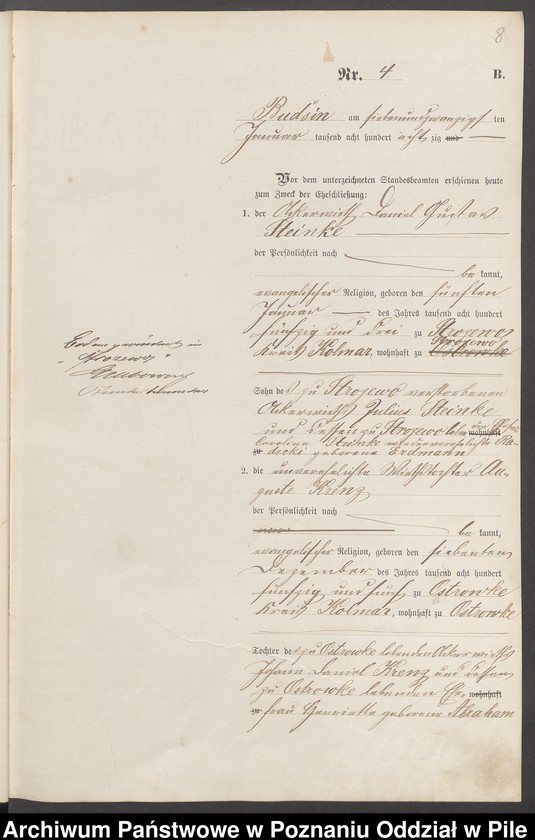 8
Nr. 4. B.
Budsin am siebenundzwanzigs ten
Januar tausend acht hundert acht zig und
Vor dem unterzeichneten Standesbeamten erschienen heute
zum Zweck der Eheschließung:
1. der Ackerwirth Daniel Gustav
Steinke
der Persönlichkeit nach
be kannt,
evangelischer Religion, geboren den fünften
Januar des Jahres tausend acht hundert
fünfzig und drei zu Strozewo
Strozewo
Kreis Kolmar, wohnhaft zu Ostrowke
"Strozewo"
Standesbeamter
Sohn des zu Strozewo verstorbenen
Ackerwirths Julius Steinke
und dessen zu Strozewo wohnhaft
Caroline Steinke geborene Erdmann
zu
2. die unverehelichte Wirthstochter Au-
guste Krenz
der Persönlichkeit nach
be kannt,
evangelischer Religion, geboren den siebenten
Dezember des Jahres tausend acht hundert
fünfzig und fünf zu Ostrowke
Kreis Kolmar, wohnhaft zu Ostrowke
Tochter des zu Ostrowke lebenden Ackerwirths
Johann Daniel Krenz und dessen
zu Ostrowke lebenden Ehe- wohnhaft
zu frau Henriette geborene Abraham
Archiwum Państwowe w Poznaniu Oddział w Pile